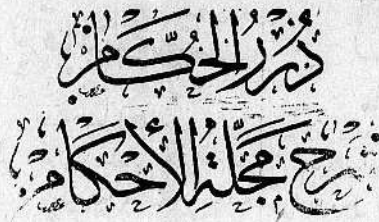 دُرَرُ الحُكَّامِ
شَرْحُ مَجَلَّةِ الأَحْكَامِ